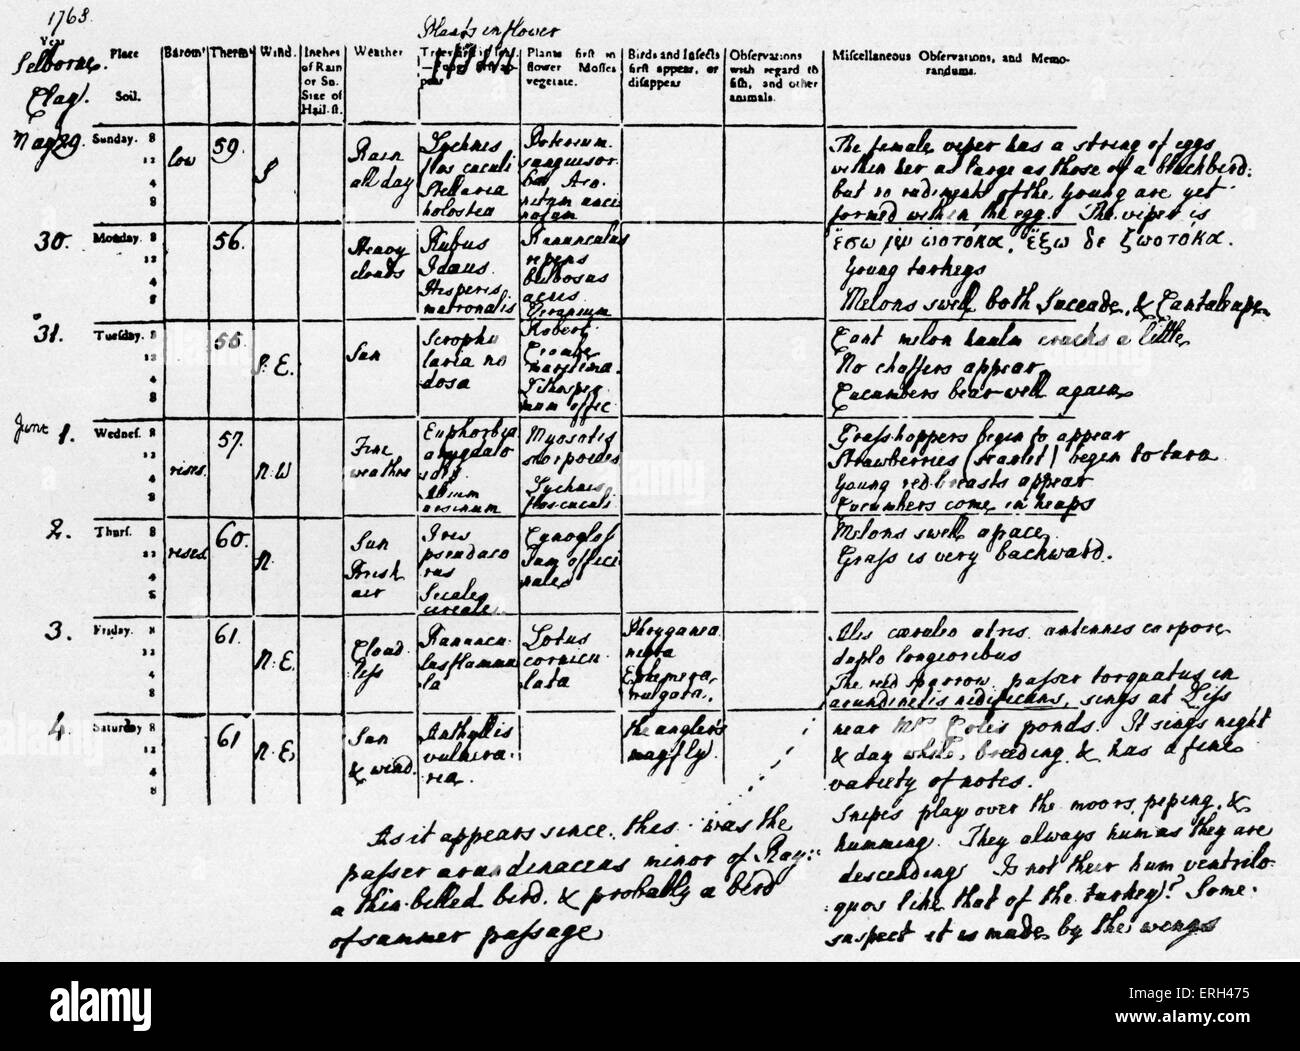 1768.
Year
Selborne.
Clay.
Place
Soil.
Barom'
Therm'
Wind.
Inches
of Rain
or Sn.
Size of
Hail-st.
Weather
Plants in flower
Plants first in
flower Mosses
vegetate.
Birds and Insects
first appear, or
disappear
Observations
with regard to
fish, and other
animals.
Miscellaneous Observations, and Memo-
randums.
May 29.
Sunday.
8
12
4
8
low
59.
S
Rain
all day
Lychnis
flos cuculi
Stellaria
holostea
Poterium
sanguisor
ba
The female viper has a string of eggs
within her as large as those of a blackbird:
but no rudiments of the young are yet
formed within the egg. The viper is
30.
Monday.
8
12
4
8
56.
Heavy
clouds
Rubus
Idaeus.
Hesperis
matronalis
Ranunculus
repens
bulbosus
acris
Geranium
Robert:
ἔσω μεν ὠοτόκα, ἔξω δε ζωοτόκα.
Young turkeys
Melons swell both Succade, & Cantaleupe
31.
Tuesday.
8
12
4
8
56.
S. E.
Sun
Scrophu
laria no
dosa
Crambe
maritima.
Lithosper
mum offic
Cant melon haulm cracks a little
No chaffers appear.
Cucumbers bear well again.
June
1.
Wednes.
8
12
4
8
rises.
57.
N. W
Fine
weather
Euphorbia
amygdalo
ides
Allium
ursinum
Myosotis
scorpoides
Lychnis
flos cuculi
Grasshoppers begin to appear
Strawberries (scarlet) begin to turn
Young red-breasts appear
Cucumbers come in heaps
2.
Thurs.
8
12
4
8
rises.
60.
N.
Sun
Brisk
air
Iris
pseudaco
rus
Secale
cereale.
Cynoglos
sum offici
nale
Melons swell apace
Grass is very backward.
3.
Friday.
8
12
4
8
61.
N. E.
Cloud
less
Ranuncu
lus flammu
la
Lotus
cornicu
lata
Phryganea
nigra
Ephemera
vulgata.
Alis caeruleo atris antennis corpore
duplo longioribus
The reed sparrow, passer torquatus in
arundinetis nidificans, sings at Liss
4.
Saturday
8
12
4
8
61
N. E.
Sun
& wind.
Anthyllis
vulnera-
ria.
the angler's
may fly.
near Mr Coles ponds. It sings night
& day while breeding & has a fine
variety of notes.
Snipes play over the moors, piping, &
humming. They always hum as they are
descending. Is not their hum ventrilo-
quos like that of the turkey? Some
suspect it is made by the wings
As it appears since, this was the
passer arundinaceus minor of Ray:
a thin-billed bird, & probably a bird
of summer passage
alamy
Image ID: ERH475
www.alamy.com